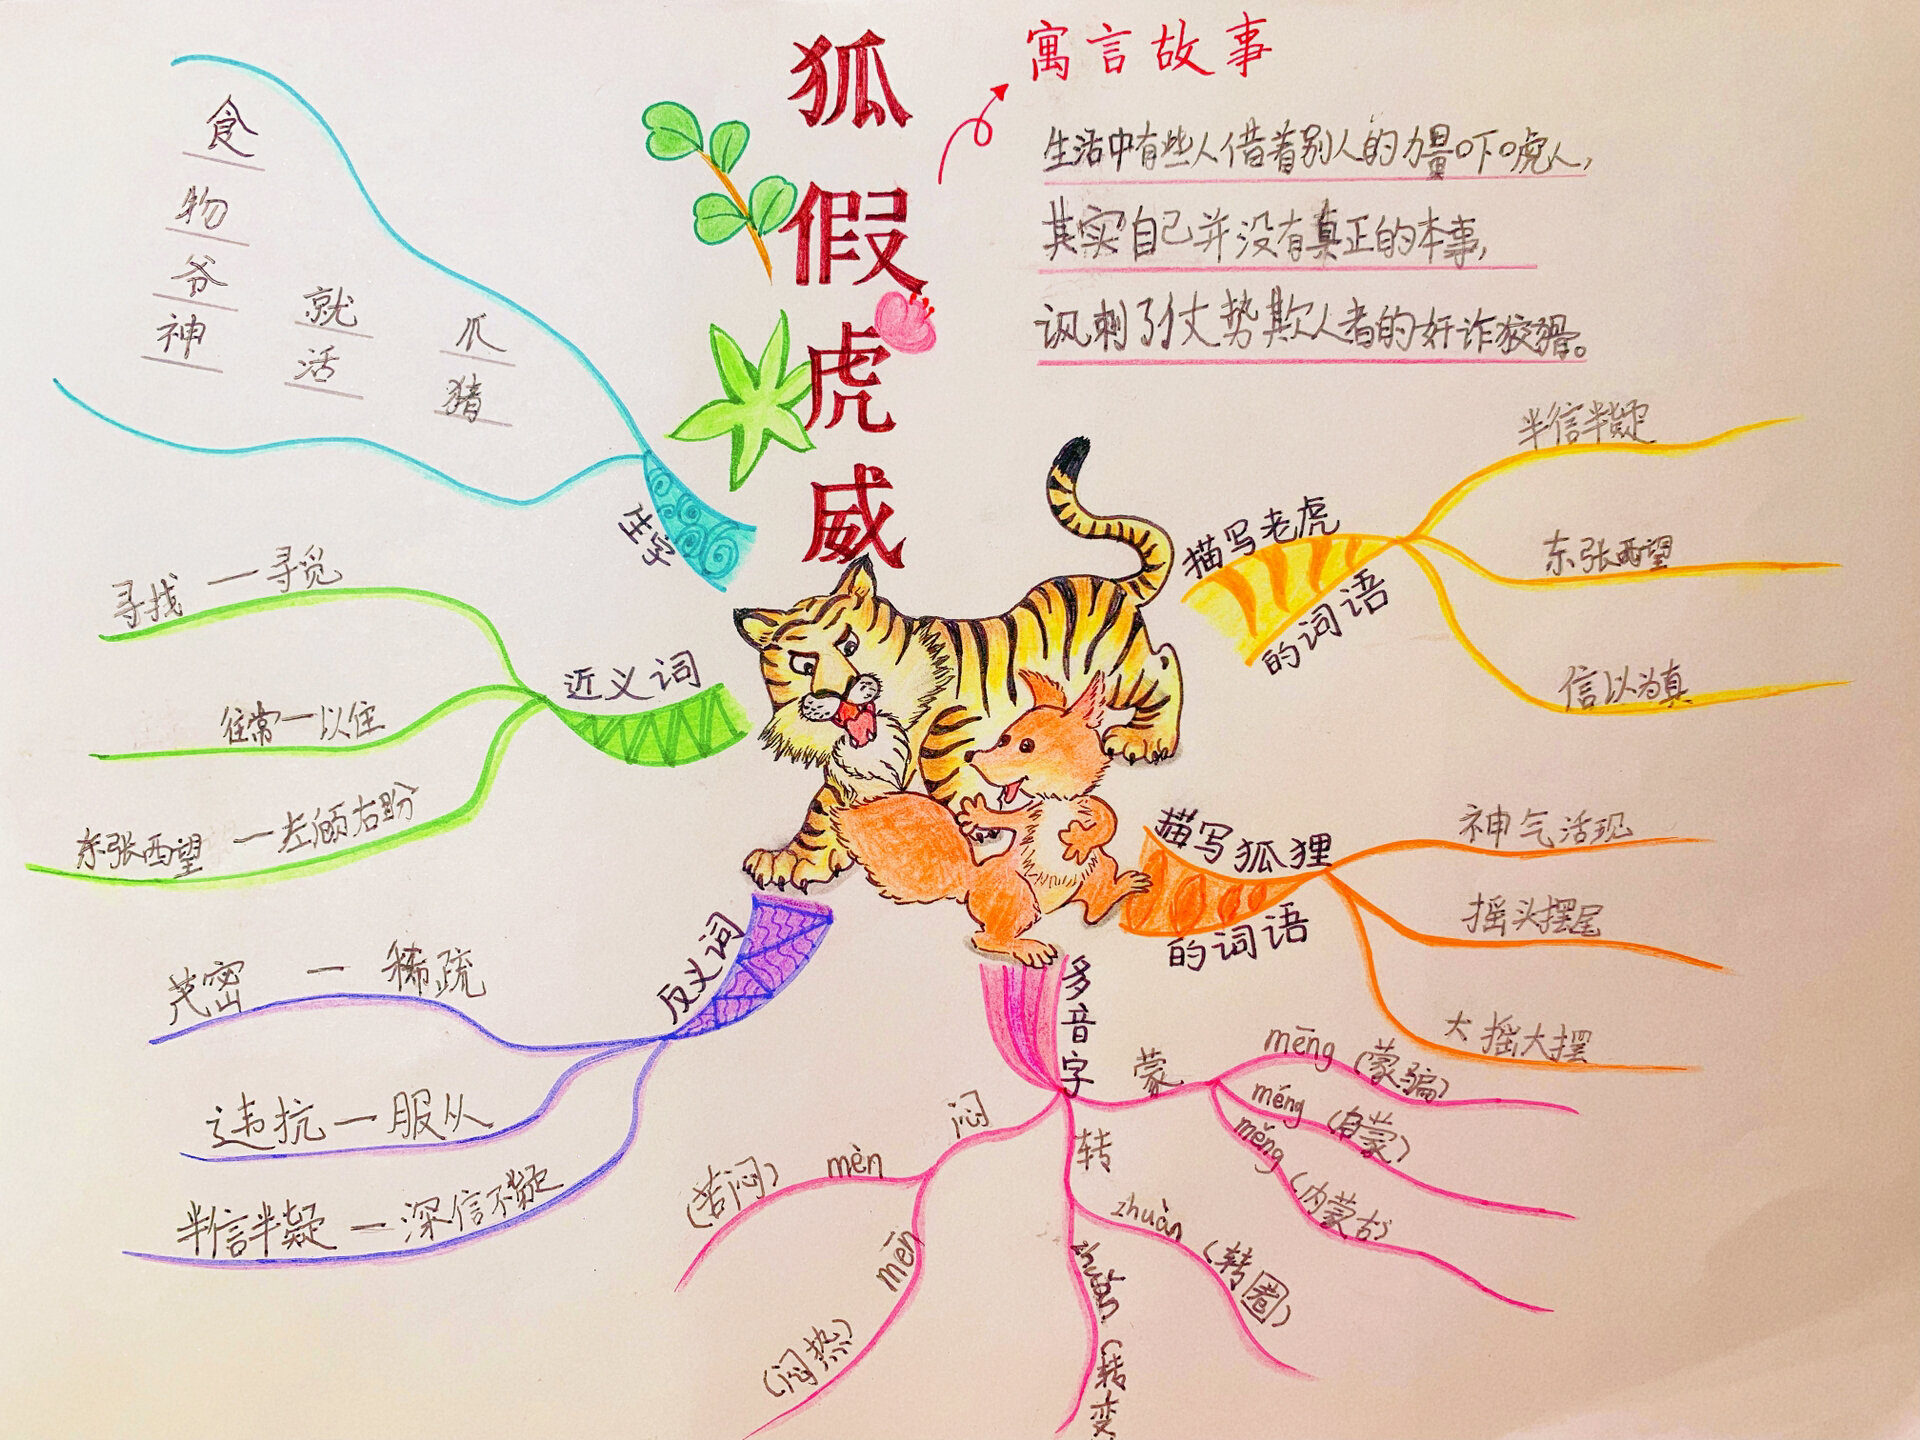 狐假虎威
寓言故事
生活中有些人借着别人的力量吓唬人，
其实自己并没有真正的本事，
讽刺了仗势欺人者的奸诈狡猾。
生字
食
物
爷
神
就
活
爪
猪
近义词
寻找—寻觅
往常—以住
东张西望—左顾右盼
反义词
茂密—稀疏
违抗—服从
半信半疑—深信不疑
描写老虎
的词语
半信半疑
东张西望
信以为真
描写狐狸
的词语
神气活现
摇头摆尾
大摇大摆
多音字
蒙
mēng（蒙骗）
méng（启蒙）
měng（内蒙古）
转
zhuàn（转圈）
zhuǎn（转变
闷
mèn（苦闷）
mēn（闷热）